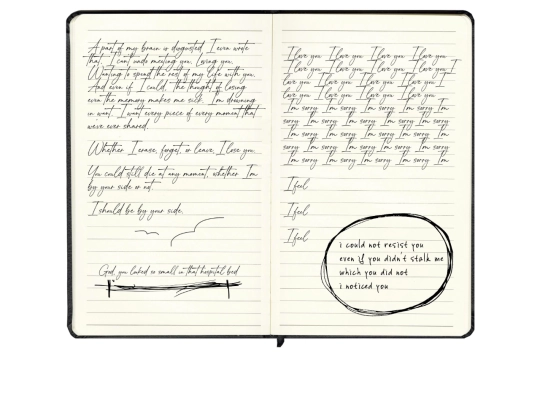 A part of my brain is disgusted I even wrote
that. I can't undo meeting you. Losing you.
Wanting to spend the rest of my life with you.
And even if I could, the thought of losing
even the memory makes me sick. I'm drowning
in want. I want every piece of every moment that
were ever shared.
Whether I erase, forget, or leave, I lose you.
You could still die at any moment, whether I'm
by your side or not.
I should be by your side.
God, you looked so small in that hospital bed
I love you I love you I love you I love you
I love you I love you I love you I love you I
love you I love you I love you I love you I
love you I love you I love you I love you
I'm sorry I'm sorry I'm sorry I'm sorry I'm
sorry I'm sorry I'm sorry I'm sorry I'm
sorry I'm sorry I'm sorry I'm sorry I'm
sorry I'm sorry I'm sorry I'm sorry I'm
sorry I'm sorry I'm sorry I'm sorry I'm
I feel
I feel
I feel
i could not resist you
even if you didn't stalk me
which you did not
i noticed you